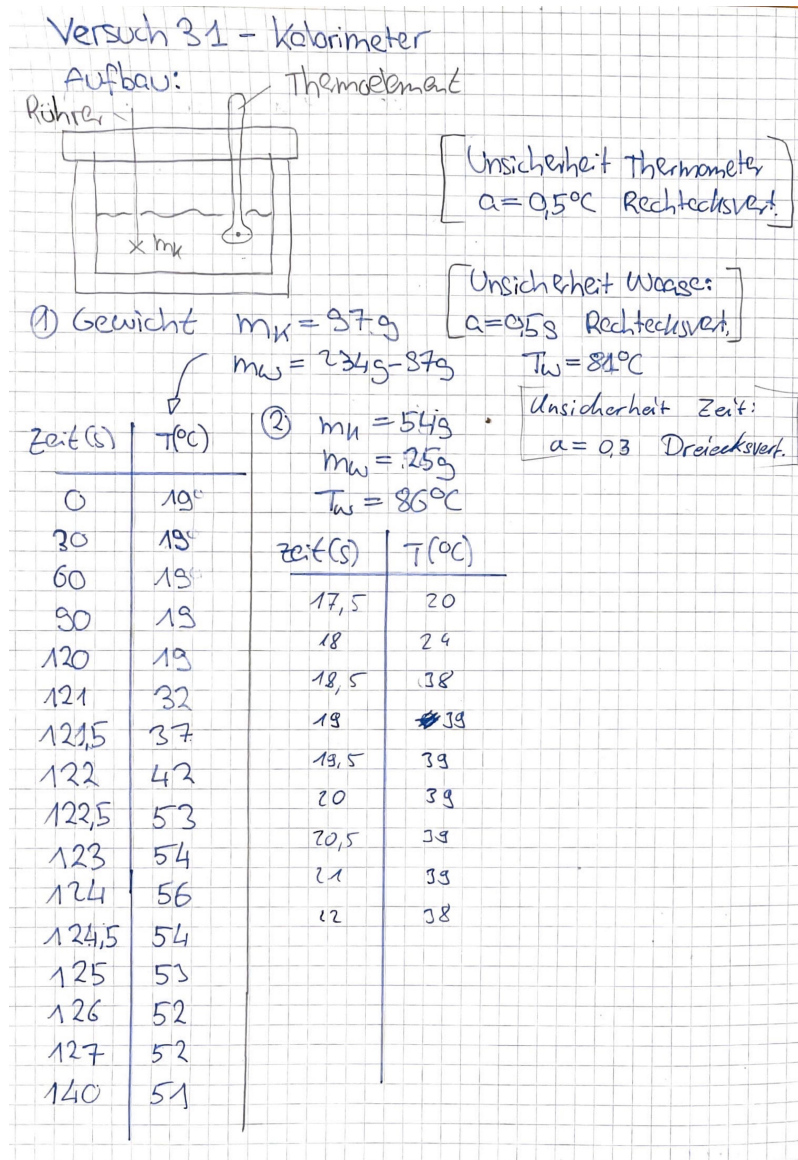 Versuch 31 - Kalorimeter
Aufbau:
Thermoelement
Rührer
mK
Unsicherheit Thermometer
a = 0,5°C Rechtecksvert.
Unsicherheit Waage:
a = 0,5g Rechtecksvert.
① Gewicht mK = 97g
mW = 234g-97g
TW = 81°C
Unsicherheit Zeit:
a = 0,3 Dreiecksvert.
Zeit(S) T(°C)
0 19
30 19
60 19
90 19
120 19
121 32
121,5 37
122 42
122,5 53
123 54
124 56
124,5 54
125 53
126 52
127 52
140 51
② mK = 54g
mW = 25g
TW = 86°C
Zeit(S) T(°C)
17,5 20
18 24
18,5 38
19 39
19,5 39
20 39
20,5 39
21 39
22 38